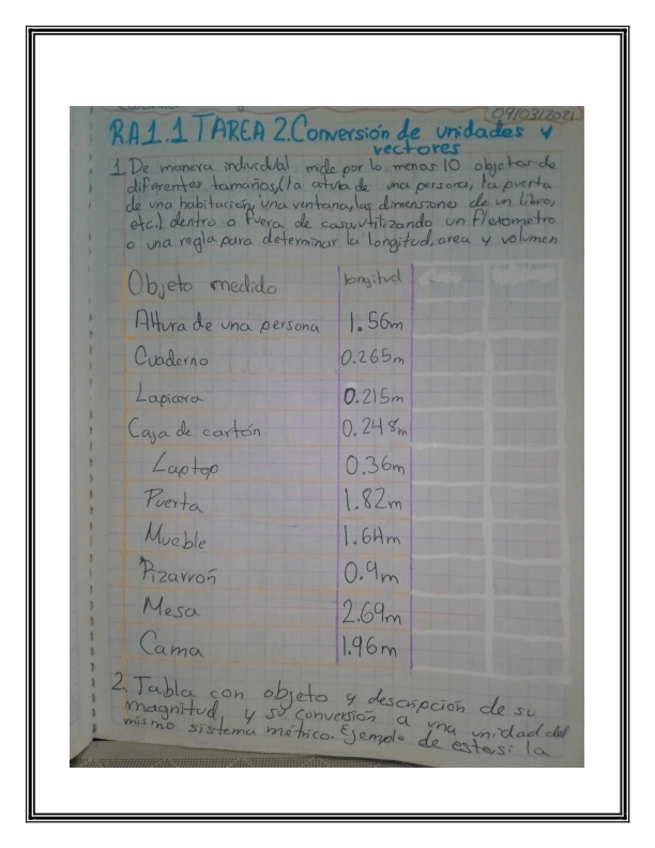 09/03/2021
RA1.1 TAREA 2.Conversión de unidades y
vectores
1 De manera individual mide por lo menos 10 objetos de
diferentes tamaños,(la altura de una persona, la puerta
de una habitación, una ventana, las dimensiones de un libro,
etc.) dentro o fuera de casa utilizando un flexometro
o una regla para determinar la longitud, area y volumen
Objeto medido longitud
Altura de una persona 1.56m
Cuaderno 0.265m
Lapicera 0.215m
Caja de cartón 0.248m
Laptop 0.36m
Puerta 1.82m
Mueble 1.64m
Pizarrón 0.9m
Mesa 2.69m
Cama 1.96m
2. Tabla con objeto y descripción de su
magnitud, y su conversión a una unidad del
mismo sistema métrico. Ejemplo de esto: si la